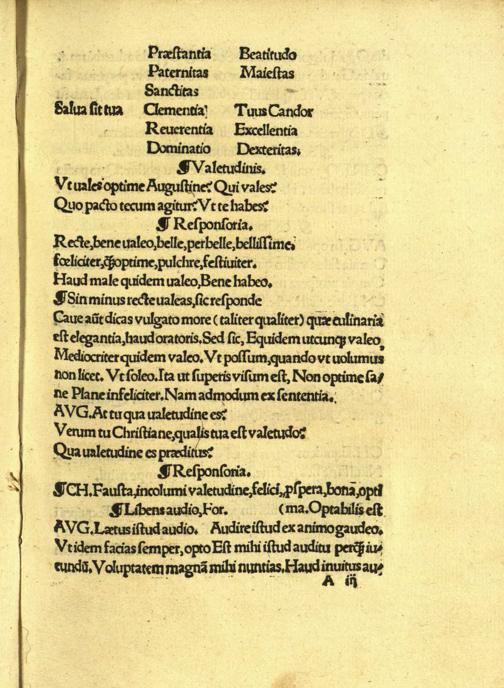 Præstantia Beatitudo
Paternitas Maiestas
Sanctitas
Salua sit tua Clementia Tuus Candor
Reuerentia Excellentia
Dominatio Dexteritas.
¶ Valetudinis.
Vt uales optime Augustine? Qui vales?
Quo pacto tecum agitur? Vt te habes?
¶ Responsoria.
Recte, bene ualeo, belle, perbelle, bellissime.
fœliciter, ꝙ̃optime, pulchre, festiuiter.
Haud male quidem ualeo, Bene habeo.
¶ Sin minus recte ualeas, sic responde
Caue aũt dicas vulgato more (taliter qualiter) quæ culinaria
est elegantia, haud oratoris. Sed sic, Equidem utcunꝙ valeo
Mediocriter quidem valeo. Vt possum, quando vt uolumus
non licet. Vt soleo. Ita ut superis visum est, Non optime sa/
ne Plane infeliciter. Nam admodum ex sententia.
AVG. At tu qua ualetudine es?
Verum tu Christiane, qualis tua est valetudo?
Qua ualetudine es præditus?
¶ Responsoria.
¶ CH. Fausta, incolumi valetudine, felici, ꝓspera, bonã, opti
¶ Libens audio, For. (ma. Optabilis est
AVG. Lætus istud audio. Audire istud ex animo gaudeo.
Vt idem facias semper, opto Est mihi istud auditu perꝙ̃ iu/
cundũ. Voluptatem magnã mihi nuntias. Haud inuitus au/
A iij